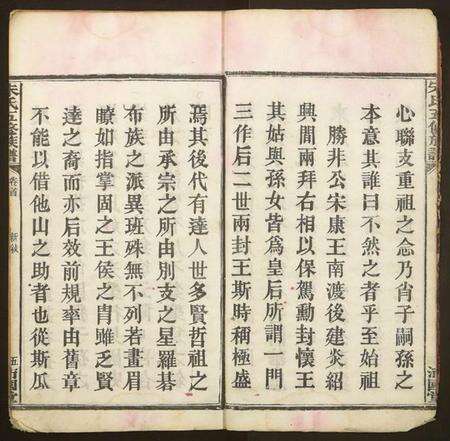 心聯支重祖之念乃肖子嗣孫之
本意其誰曰不然之者乎至始祖
勝非公宋康王南渡後建炎紹
興間兩拜右相以保駕勳封懷王
其姑與孫女皆爲皇后所謂一門
三作后二世兩封王斯時稱極盛
焉其後代有達人世多賢哲祖之
所由承宗之所由別支之星羅碁
布族之派異班殊無不列若畫眉
瞭如指掌固之王侯之胄雖乏賢
達之裔而亦后效前規率由舊章
不能以借他山之助者也從斯瓜
朱氏五修族譜
卷首
新敘
五